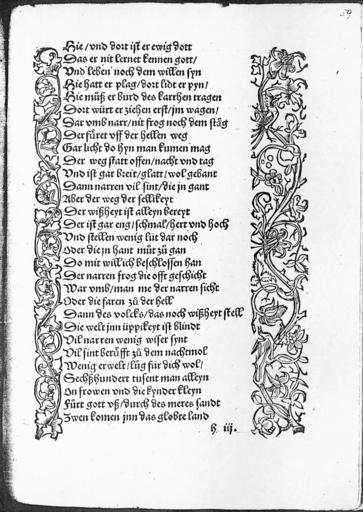 59
Hie / vnd dort ist er ewig dott
Das er nit lernet kennen gott /
Vnd leben noch dem willen syn
Hie hatt er plag / dort lidt er pyn /
Hie müß er burd des karrhen tragen
Dort würt er ziehen erst / jm wagen /
Dar vmb narr / nit frog noch dem stäg
Der füret vff der hellen weg
Gar licht do hyn man kumen mag
Der weg statt offen / nacht vnd tag
Vnd ist gar breit / glatt / wol gebant
Dann narren vil sint / die jn gant
Aber der weg der sellikeyt
Der wißheyt ist alleyn bereyt
Der ist gar eng / schmal / hert vnd hoch
Vnd stellen wenig lüt dar noch
Oder die jn hant müt zů gan
Do mit will ich beschlossen han
Der narren frog die offt geschicht
War vmb / man me der narren sicht
Oder die faren zů der hell
Dann des volcks / das noch wißheyt stell
Die welt jnn üppikeyt ist blindt
Vil narren wenig wiser synt
Vil sint berüfft zů dem nachtmol
Wenig erwelt / lůg für dich wol /
Sechßhundert tusent man alleyn
On frowen vnd die kynder kleyn
Fürt gott vß / durch des meres sandt
Zwen komen jnn das globte land
h iij.